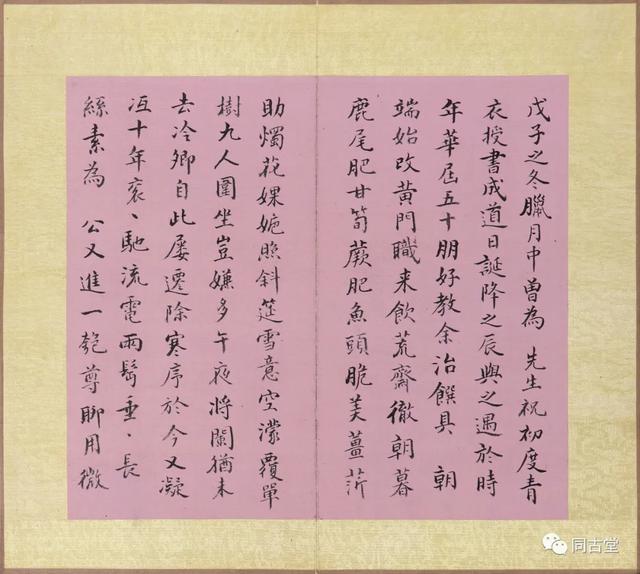 戊子之冬臘月中曽為 先生祝初度青
衣授書成道日誕降之辰與之遇於時
年華屆五十朋好教余治饌具 朝
端始改黃門職来飲荒齋徹朝暮
鹿尾肥甘筍蕨肥魚頭脆美薑
助燭花照斜筵雪意空濛覆單
樹九人圍坐豈嫌多午夜將闌猶未
去冷卿自此屡遷除寒序於今又凝
冱十年衮、馳流電兩髩垂、長
絲素為 公又進一匏尊聊用微
同古堂